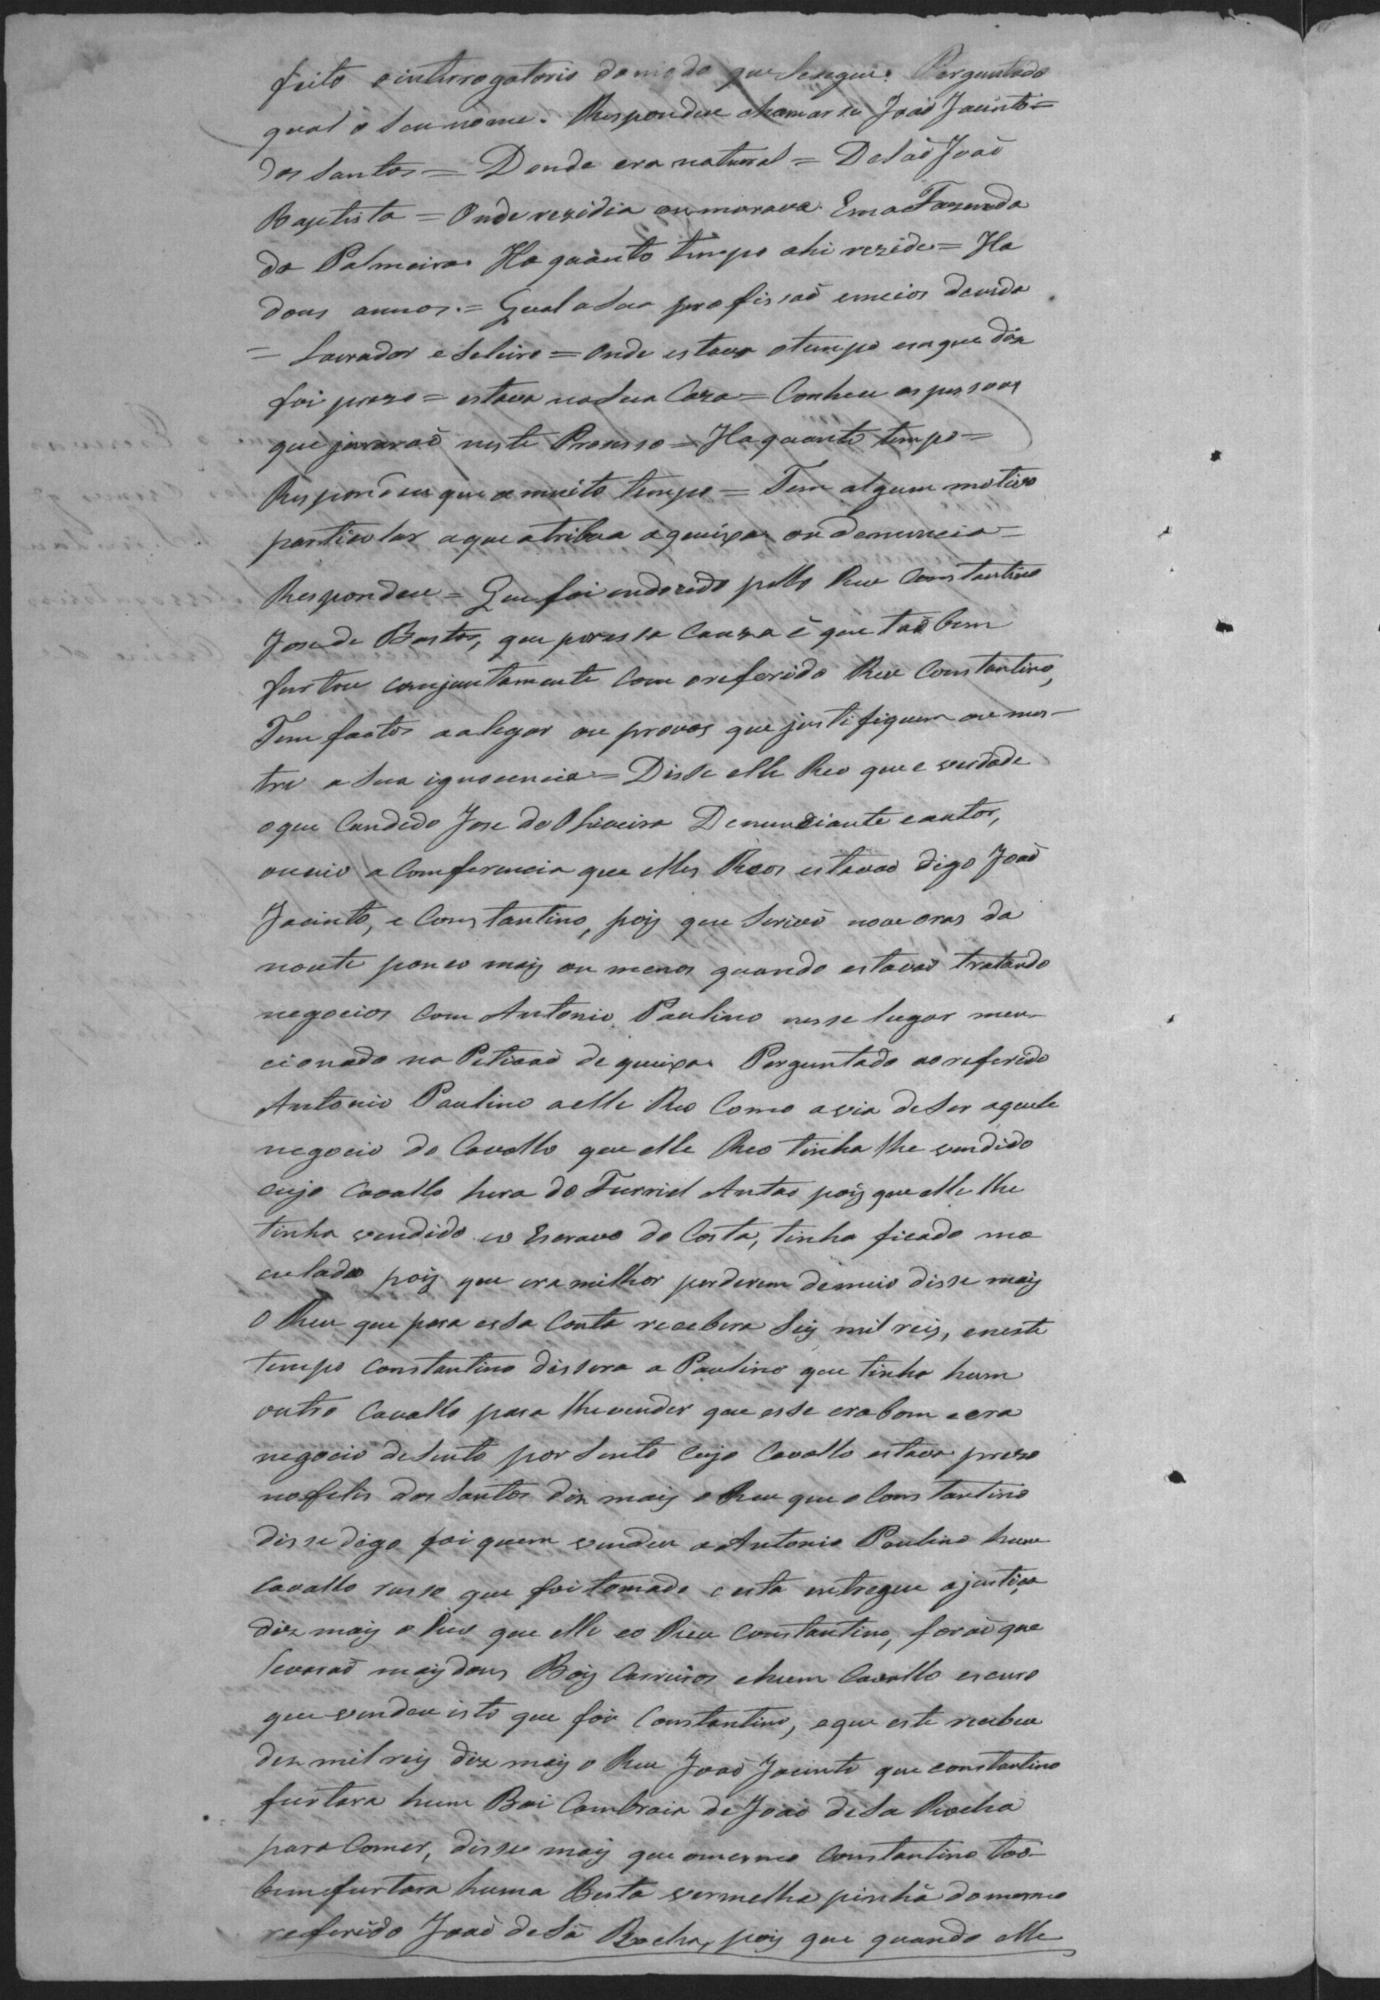 feito o interrogatorio domodo que Sesegue. Perguntado
qual o Seu nome. Respondeu chamarse João Jacinto=
dos Santos = Donde era natural = DeSaõ Joaõ
Baptista = Onde rezidia ou morava. Em a Fazenda
da Palmeira. Ha quanto tempo ahi rezide = Ha
dous annos. = Qual a Sua profissaõ emeios davida
= Lavrador e Seleiro = Onde estava otempo emque diz
foi prezo = estava na Sua Caza = Conheci as pessoas
que juraraõ neste Prosesso = Ha quanto tempo =
Respondeu que a muito tempo = Tem algum motivo
particular aque atribua aqueixa ou denuncia =
Respondeu = Que foi indozido pello Reu Constantino
Jose de Bastos, que por essa Cauza é que taõ bem
furtou conjuntamente Com oreferido Reu Constantino,
Tem factos a alegar ou provas que justifiquem ou mos-
tre a Sua ignocencia = Disse elle Reo que e verdade
oque Candido Jose de Oliveira Denunciante e autor,
ouvio a Comferencia que elles Reos estavaõ digo Joaõ
Jacinto, e Constantino, pois que Seriaõ nove oras da
noute pouco mais ou menos quando estavaõ tratando
negocios Com Antonio Paulino nesse lugar men-
cionado na Peticaõ de queixa. Perguntado ao referido
Antonio Paulino a elle Reo Como avia deSer aquele
negocio do Cavallo que elle Reo tinha lhe vendido
cujo Cavallo hera do Furriel Antaõ pois que elle lhe
tinha vendido eo Escravo do Costa, tinha ficado ma
culado pois que era milhor perderem demeio disse mais
O Reu que para essa Conta recebera Seis mil reis, eneste
tempo Constantino dissera a Paulino que tinha hum
outro Cavallo para lhe vender que esse era bom e era
negocio deSento por Sento Cujo Cavallo estava prezo
no Felis dos Santos diz mais o Reu que o Constantino
disse digo foi quem vendeu a Antonio Paulino hum
Cavallo russo que foi tomado e esta entregue ajustiça
diz mais o Reu que elle eo Reu Constantino, foraõ que
levaraõ mais dous Bois Carreiros ehum Cavallo escuro
que vendeu isto que foi Constantino, eque este recebeu
dez mil reis diz mais o Reu Joaõ Jacinto que constantino
furtara hum Boi Cambraia de Joaõ deSa Rocha
para Comer, disse mais que omesmo Constantino taõ-
bem furtara huma Besta vermelha pinhã domesmo
referido Joaõ deSá Rocha, pois que quando elle